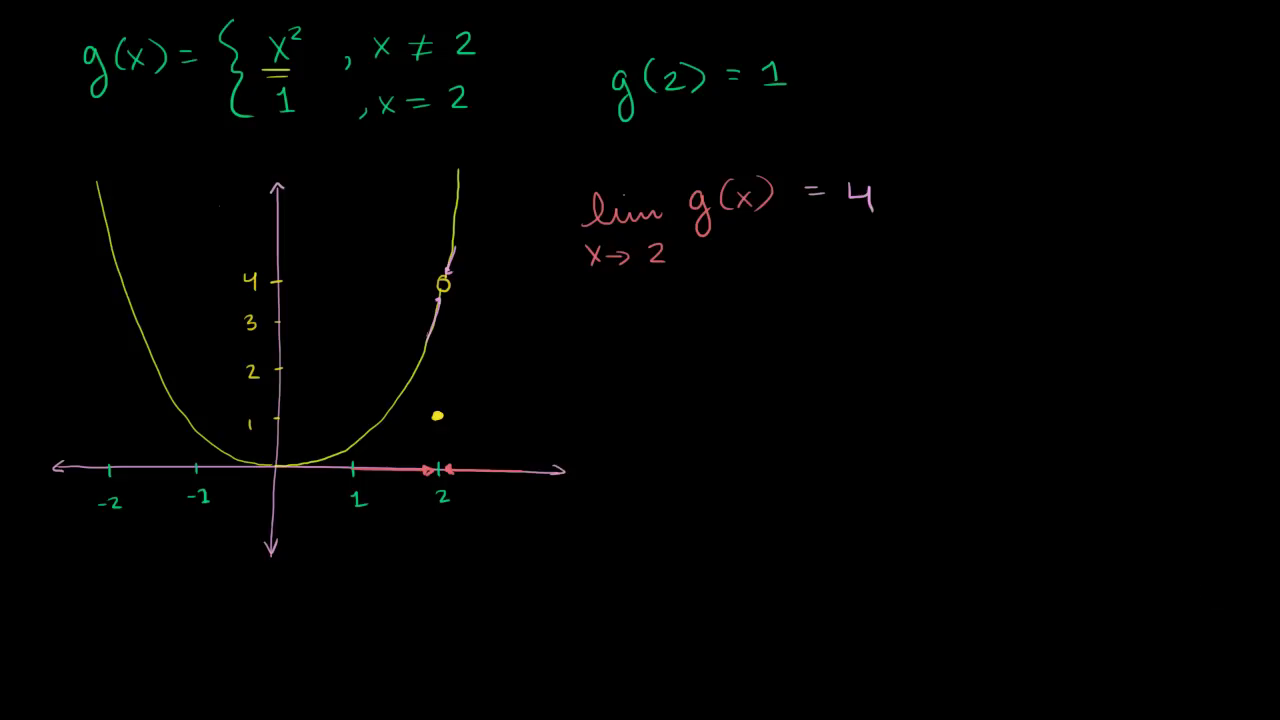 g(x) = { x² , x ≠ 2
1 , x = 2
g(2) = 1
lim g(x) = 4
x → 2
4
3
2
1
-2 -1 1 2